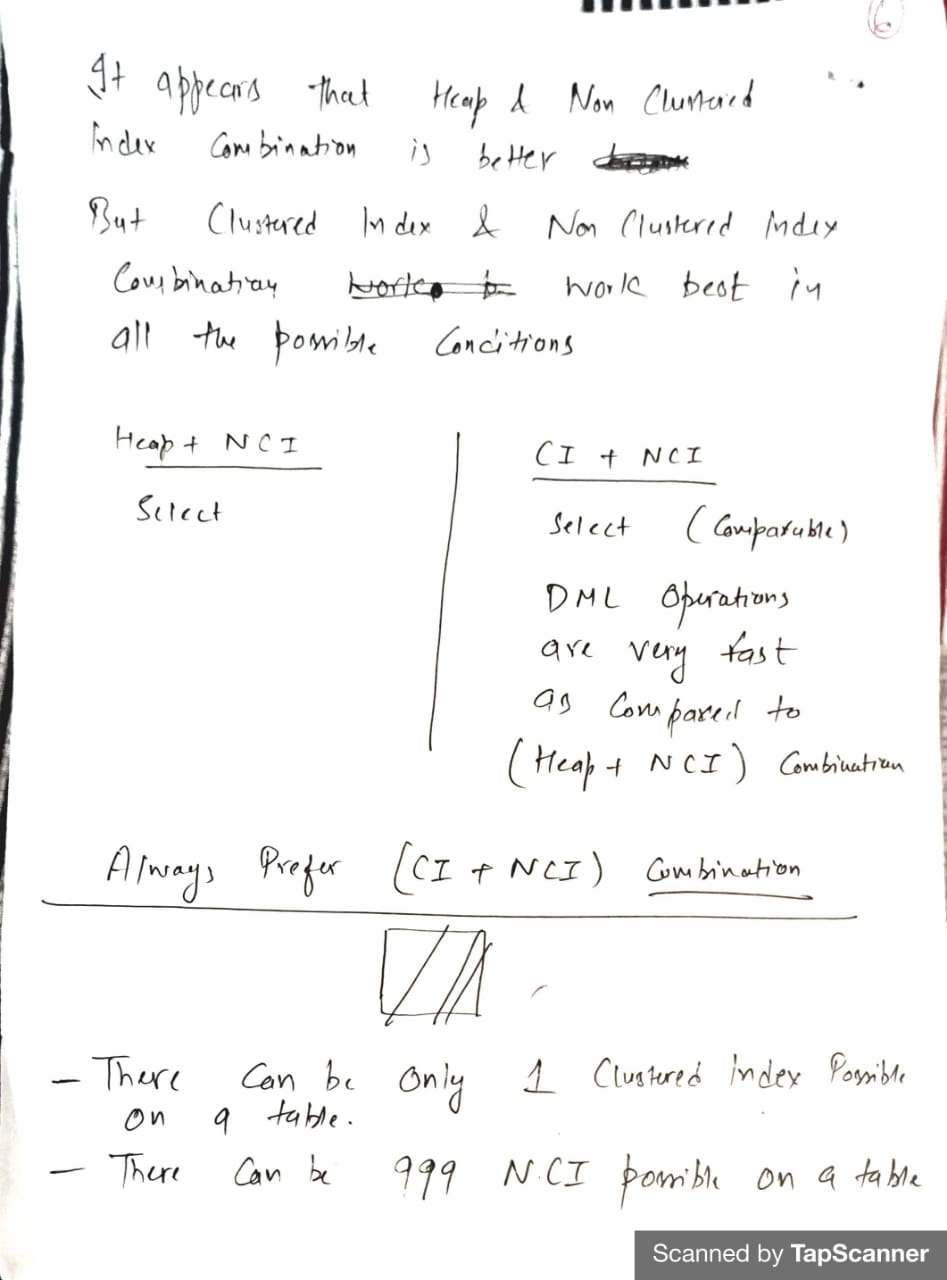 6
It appears that Heap & Non Clustered
Index Combination is better
But Clustered Index & Non Clustered Index
Combination work best in
all the possible Conditions
Heap + NCI
Select
CI + NCI
Select (Comparable)
DML Operations
are very fast
as Compared to
(Heap + NCI) Combination
Always Prefer (CI + NCI) Combination
- There Can be only 1 Clustered index Possible
on a table.
- There Can be 999 N.CI possible on a table
Scanned by TapScanner